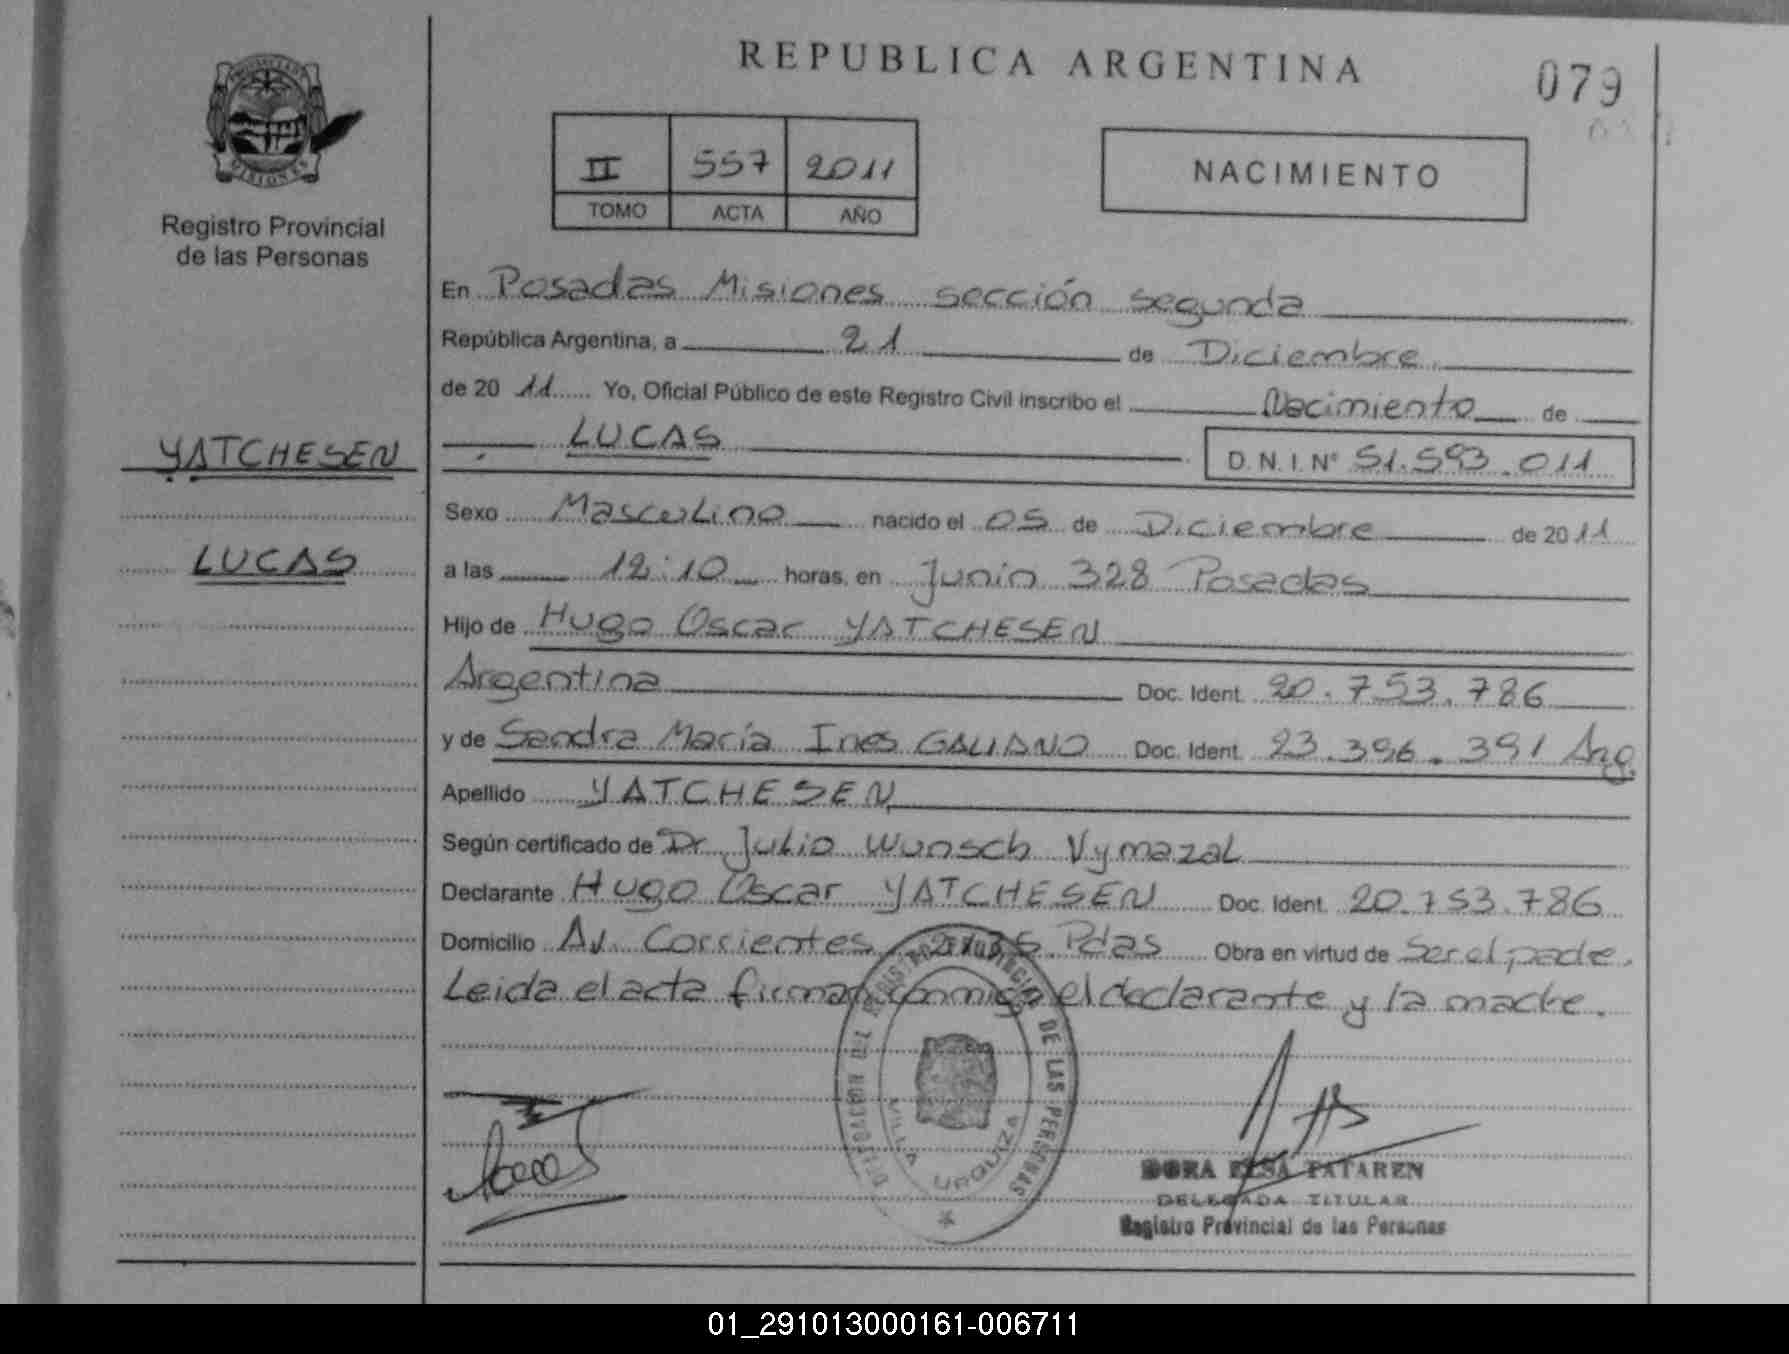 REPUBLICA ARGENTINA
079
II 557 2011
TOMO ACTA AÑO
NACIMIENTO
Registro Provincial
de las Personas
YATCHESEN
LUCAS
En Posadas Misiones sección segunda
República Argentina, a 21 de Diciembre
de 20 11 Yo, Oficial Público de este Registro Civil inscribo el Nacimiento de
LUCAS D.N.I. N° 51.593.011
Sexo Masculino nacido el 05 de Diciembre de 2011
a las 12:10 horas, en Junin 328 Posadas
Hijo de Hugo Oscar YATCHESEN
Argentina Doc. Ident. 20.753.786
y de Sandra María Ines GALIANO Doc. Ident. 23.396.391 Arg.
Apellido YATCHESEN
Según certificado de Dr Julio Wunsch Vymazal
Declarante Hugo Oscar YATCHESEN Doc. Ident. 20.753.786
Domicilio Av. Corrientes Pdas Obra en virtud de Ser el padre.
Leida el acta firman conmigo el declarante y la madre.
REGISTRO PROVINCIAL DE LAS PERSONAS
VILLA URQUIZA
DORA ELSA TATAREN
DELEGADA TITULAR
Registro Provincial de las Personas
01_291013000161-006711